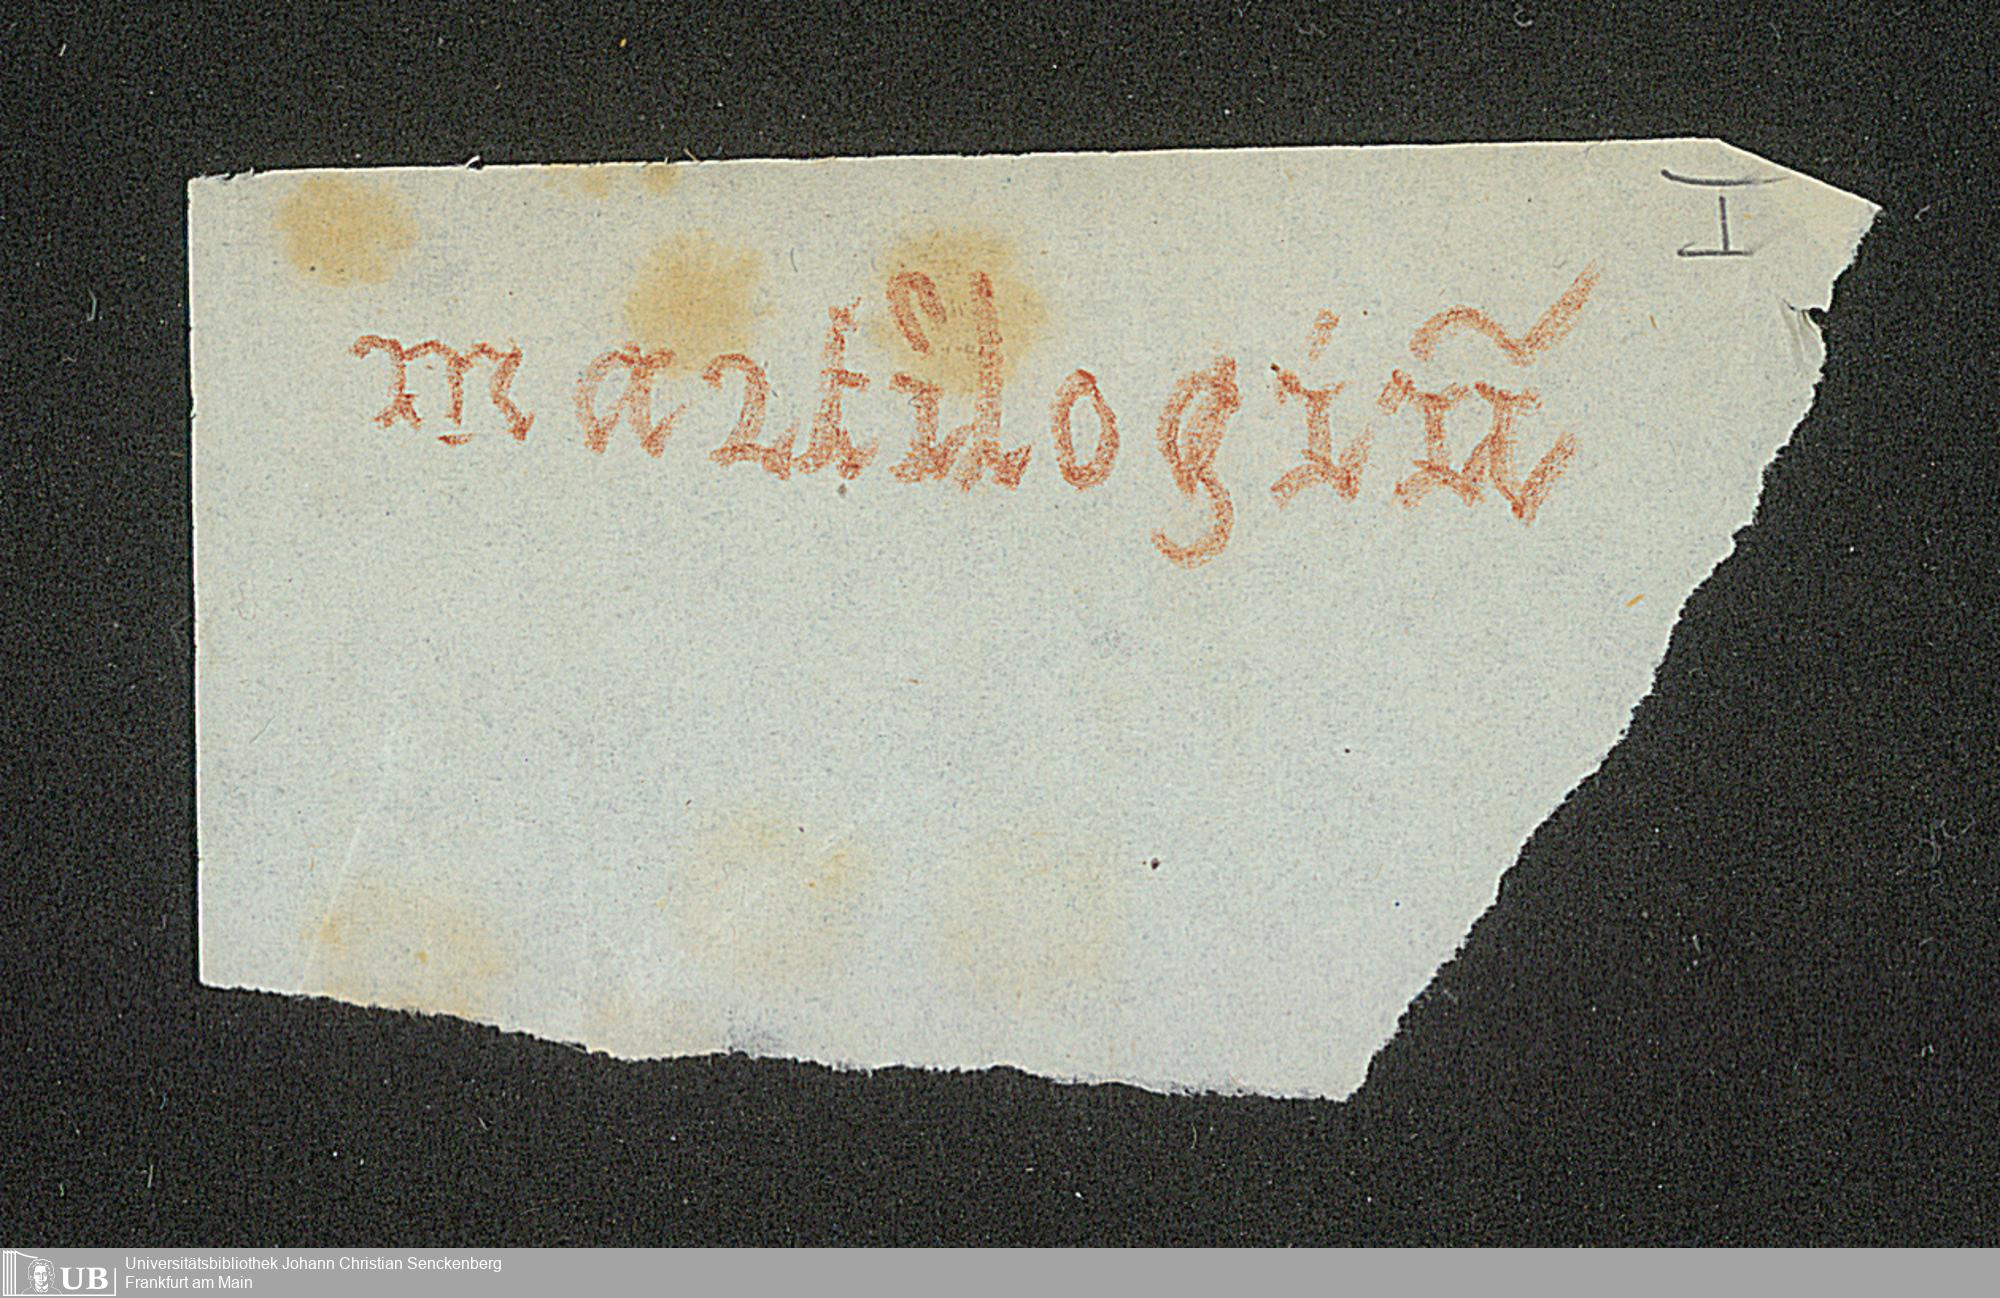 martilogiũ
I
UB Universitätsbibliothek Johann Christian Senckenberg
Frankfurt am Main